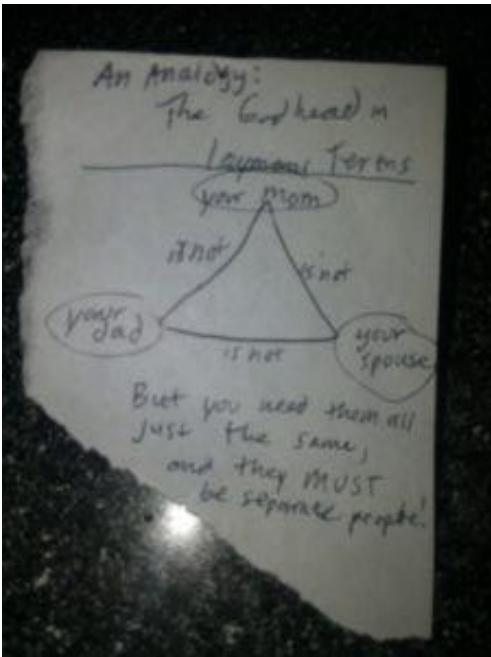 An Analogy:
The Godhead in
Laymens Terms
your mom
is not
is not
your
dad
is not
your
spouse
But you need them all
just the same,
and they MUST
be separate people!